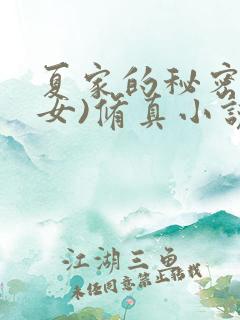 夏家的秘密
女)修真小说
江湖三鱼
未经同意禁止转载